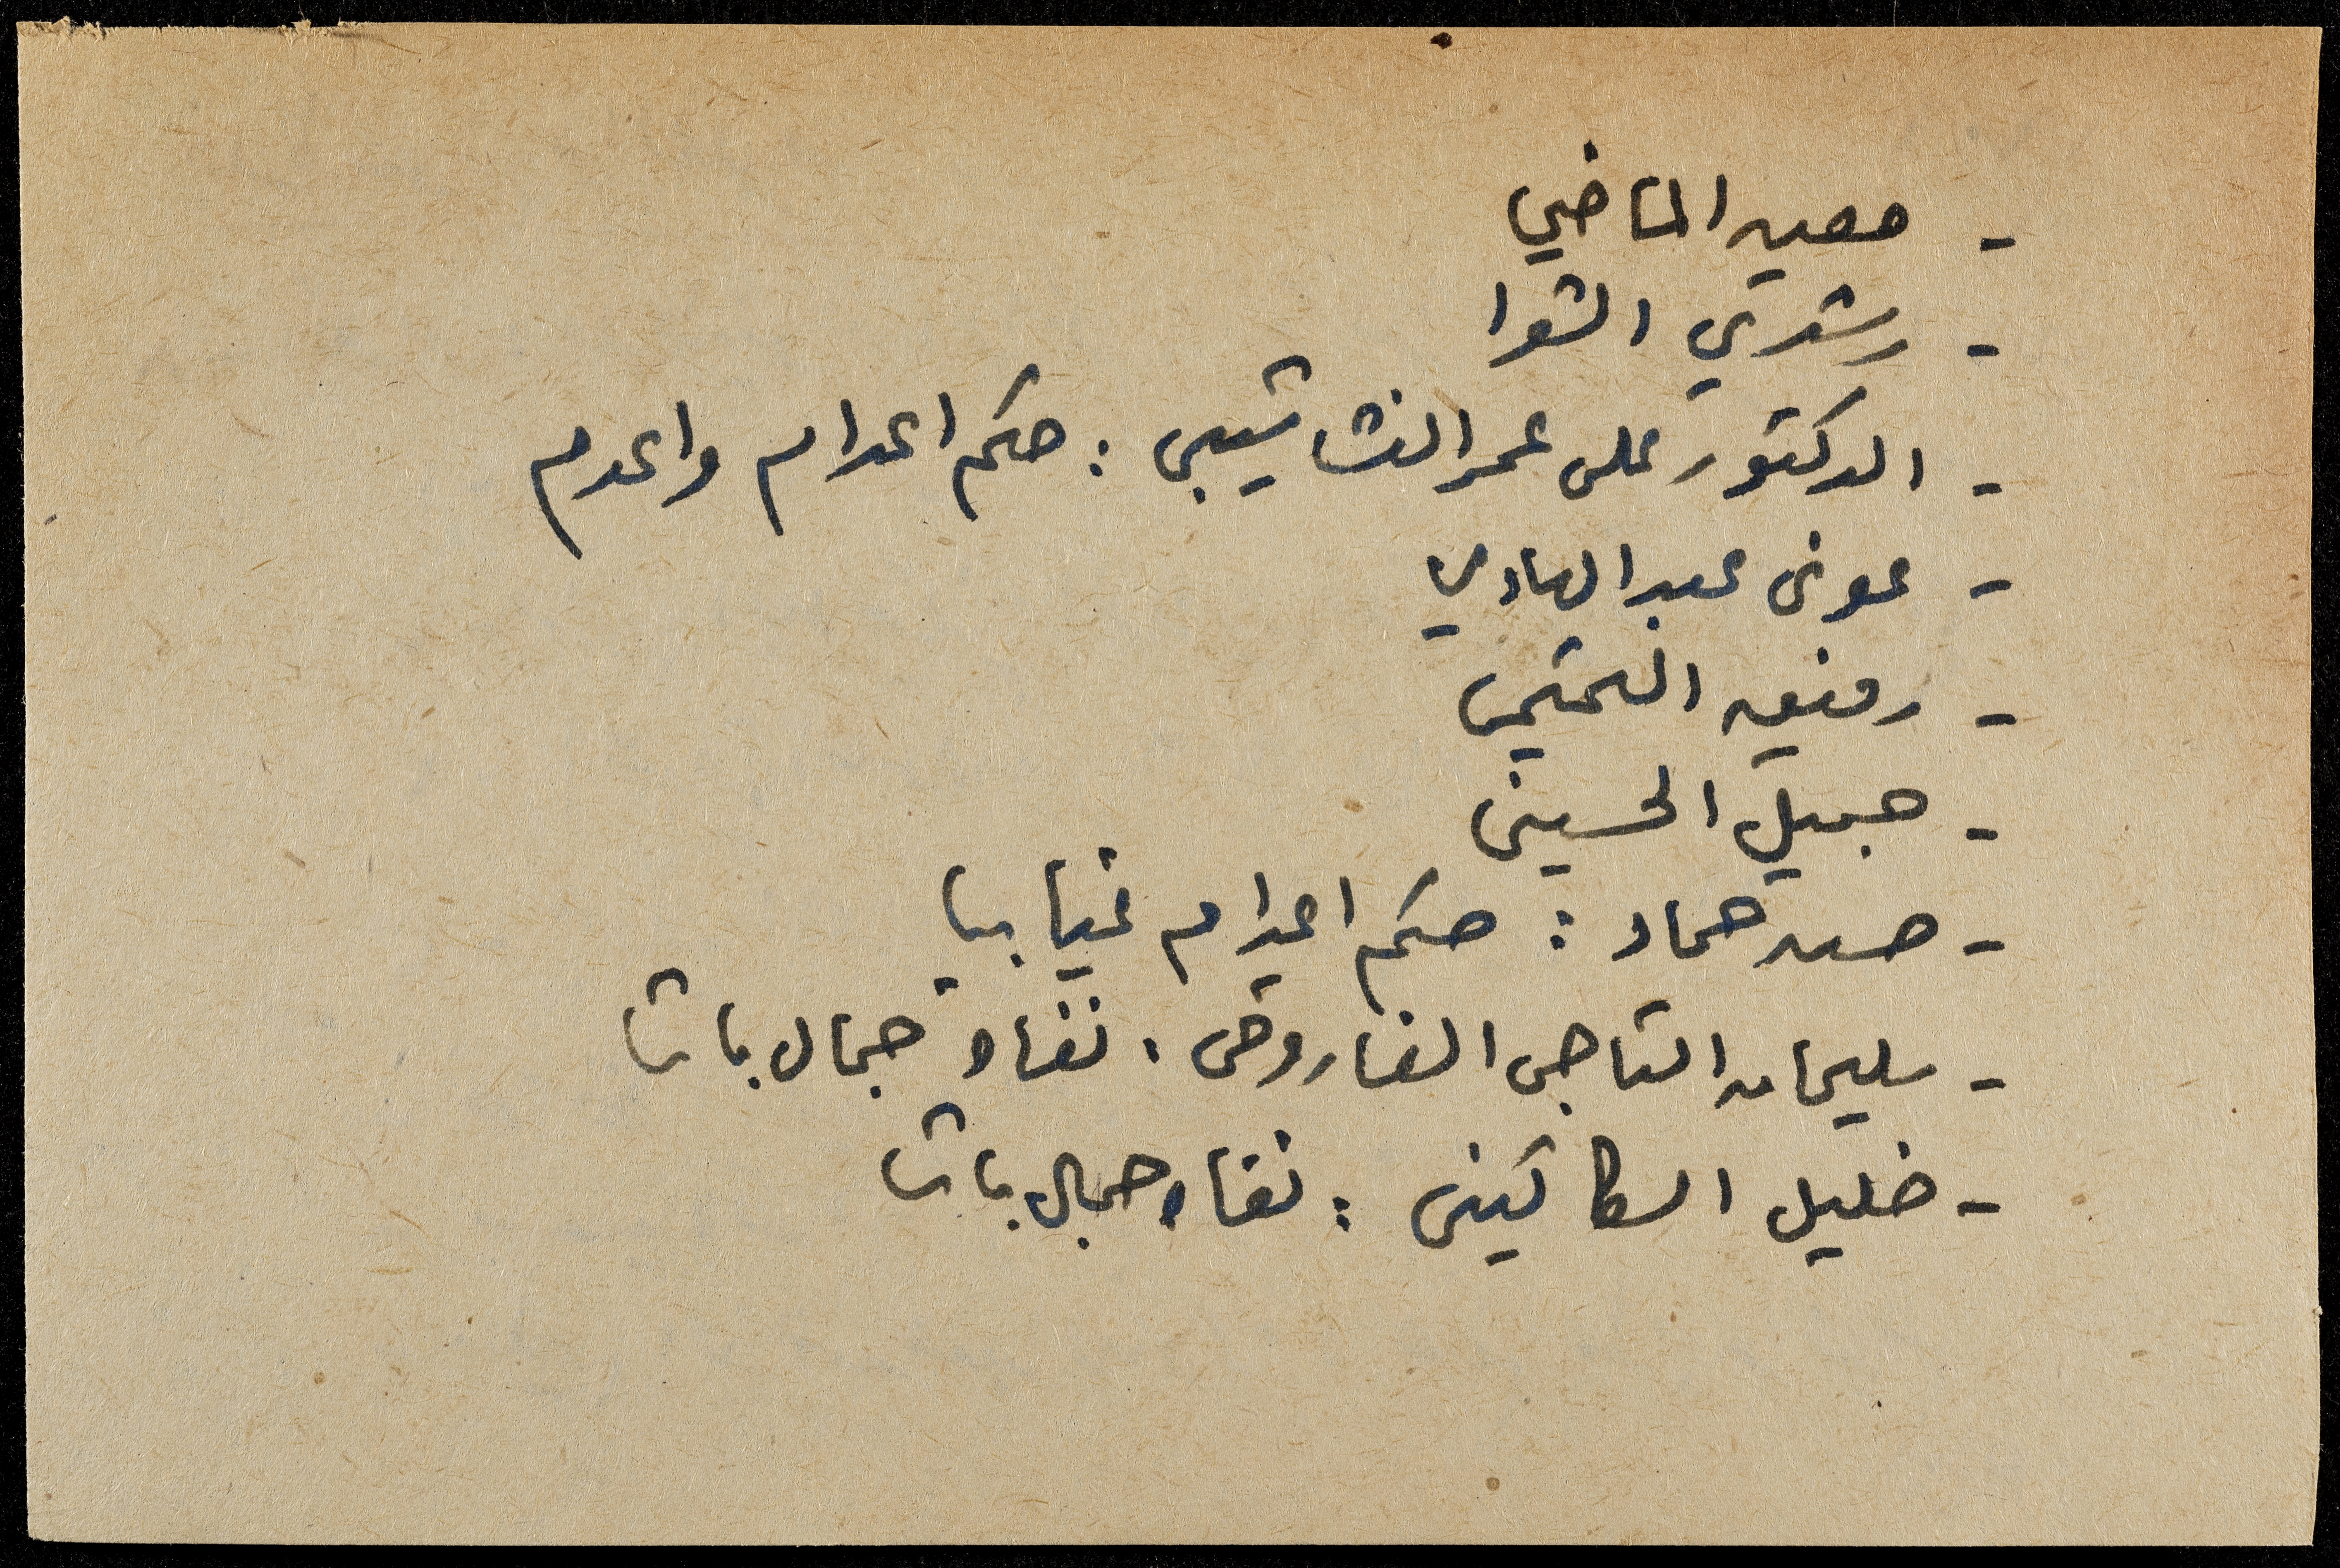 - معين الماضي
- رشدي الشوا
- الدكتور على عمر النشاشيبى : حكم اعدام واعدم
- عونى عبد الهادي
- رفيق التميمى
- جميل الحسينى
- حسن حماد : حكم اعدام غيابيا
- سليمان التاجى الفاروقى . نفاه جمال باشا
- خليل السكاكينى : نفاه جمال باشا